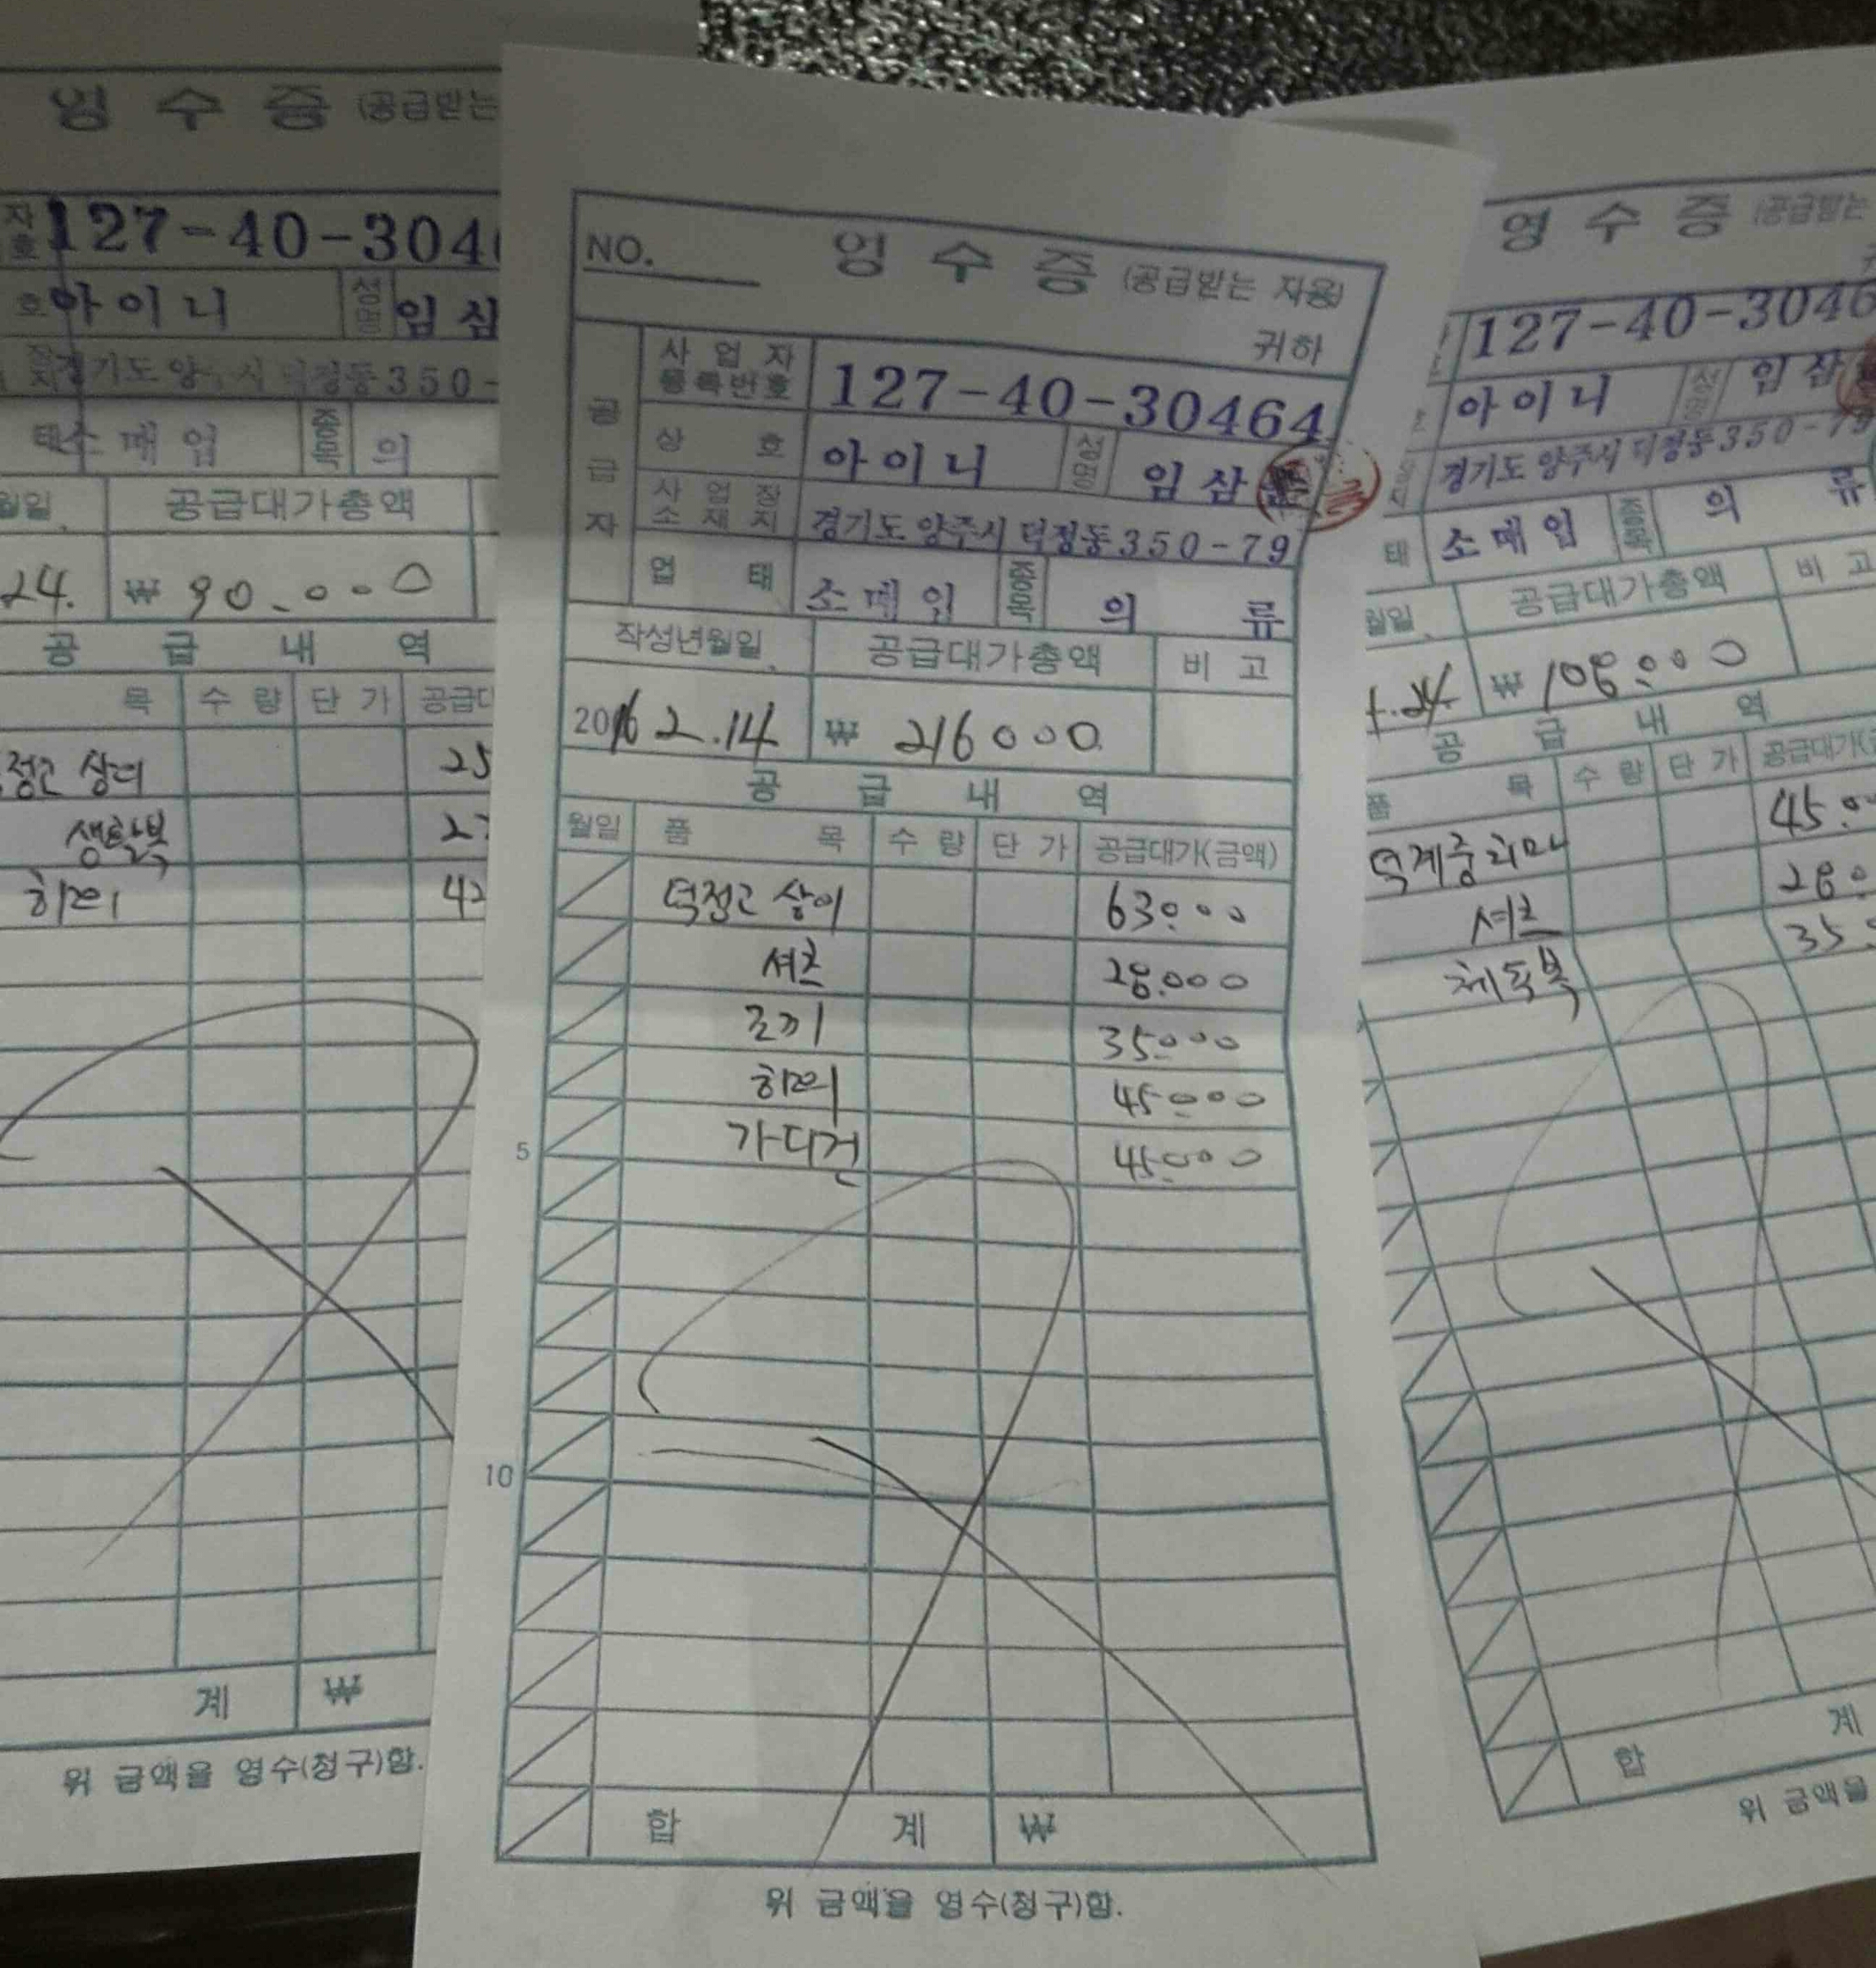 영 수 증 (공급받는
자 127-40-304
호
호 아이니 성명 임삼
경기도 양주시 덕정동 350-
태 소매업 종목 의
월일 공급대가총액
24. ₩ 90.000
공 급 내 역
목 수 량 단 가 공급대
정고 상의 25
생활복 27
하의 42
계 ₩
위 금액을 영수(청구)함.
NO. 영 수 증 (공급받는 자용)
귀하
공 급 자
사 업 자 등록번호 127-40-30464
상 호 아이니 성명 임삼
사 업 장 소 재 지 경기도 양주시 덕정동 350-79
업 태 소매업 종목 의 류
작성년월일 공급대가총액 비 고
2016 2.14 ₩ 216000
공 급 내 역
월일 품 목 수 량 단 가 공급대가(금액)
덕정고 상의 63000
셔츠 28.000
조끼 35000
하의 45000
가디건 45000
5
10
합 계 ₩
위 금액을 영수(청구)함.
영 수 증 (공급받는
127-40-3046
아이니 성명 임삼
경기도 양주시 덕정동 350-79
태 소매업 종목 의 류
월일 공급대가총액 비 고
24 ₩ 108.000
공 급 내 역
품 목 수 량 단 가 공급대가(금
덕계중 치마 45.0
셔츠 28.0
체육복 35.
합 계
위 금액을